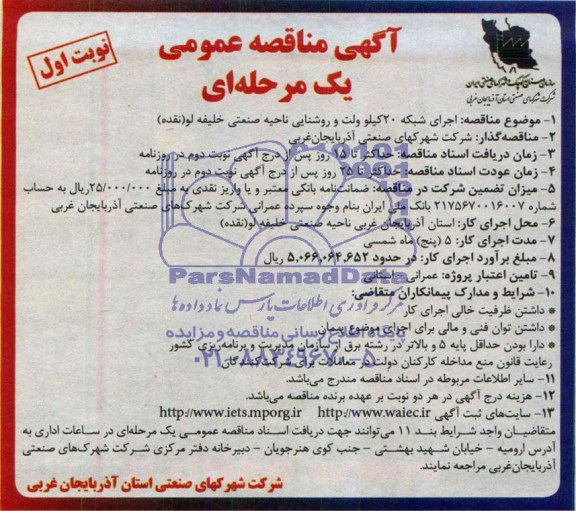 آگهی مناقصه عمومی
یک مرحله‌ای
نوبت اول
شرکت شهرکهای صنعتی استان آذربایجان غربی
۱- موضوع مناقصه: اجرای شبکه ۲۰کیلو ولت و روشنایی ناحیه صنعتی خلیفه لو(نقده)
۲- مناقصه‌گذار: شرکت شهرکهای صنعتی آذربایجان‌غربی
۳- زمان دریافت اسناد مناقصه: حداکثر تا ۱۵ روز پس از درج آگهی نوبت دوم در روزنامه
۴- زمان عودت اسناد مناقصه: حداکثر تا ۲۵ روز پس از درج آگهی نوبت دوم در روزنامه
۵- میزان تضمین شرکت در مناقصه: ضمانت‌نامه بانکی معتبر و یا واریز نقدی به مبلغ ۲۵/۰۰۰/۰۰۰ریال به حساب
شماره ۲۱۷۵۶۷۰۰۱۶۰۰۷ بانک ملی ایران بنام وجوه سپرده عمرانی شرکت شهرک‌های صنعتی آذربایجان غربی
۶- محل اجرای کار: استان آذربایجان غربی ناحیه صنعتی خلیفه لو(نقده)
۷- مدت اجرای کار: ۵ (پنج) ماه شمسی
۸- مبلغ برآورد اجرای کار: در حدود ۵,۰۶۶,۰۶۴,۶۵۲ ریال
۹- تامین اعتبار پروژه: عمرانی - استانی
۱۰- شرایط و مدارک پیمانکاران متقاضی:
● داشتن ظرفیت خالی اجرای کار
● داشتن توان فنی و مالی برای اجرای موضوع پیمان
● دارا بودن حداقل پایه ۵ و بالاتر در رشته برق از سازمان مدیریت و برنامه‌ریزی کشور
رعایت قانون منع مداخله کارکنان دولت در معاملات برای شرکت‌کنندگان
۱۱- سایر اطلاعات مربوطه در اسناد مناقصه مندرج می‌باشد.
۱۲- هزینه درج آگهی در هر دو نوبت بر عهده برنده مناقصه می‌باشد.
۱۳- سایت‌های ثبت آگهی http://www.waiec.ir http://www.iets.mporg.ir
متقاضیان واجد شرایط بند ۱۱ می‌توانند جهت دریافت اسناد مناقصه عمومی یک مرحله‌ای در ساعات اداری به
آدرس ارومیه - خیابان شهید بهشتی - جنب کوی هنرجویان - دبیرخانه دفتر مرکزی شرکت شهرک‌های صنعتی
آذربایجان‌غربی مراجعه نمایند.
شرکت شهرکهای صنعتی استان آذربایجان غربی
ParsNamadData
مرکز فرآوری اطلاعات پارس نماد داده ها
پایگاه اطلاع رسانی مناقصه و مزایده
۰۲۱-۸۸۳۴۹۶۷۰-۵